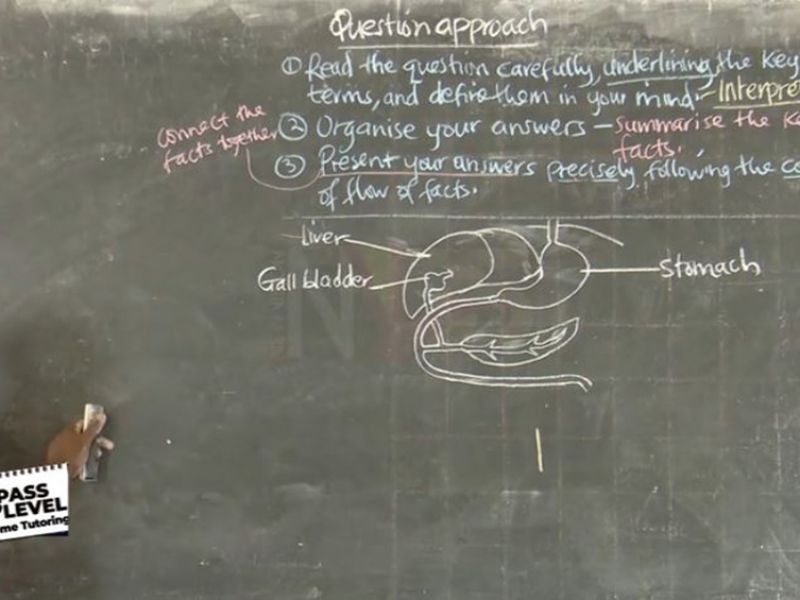 Question approach
① Read the question carefully, underlining the key
terms, and define them in your mind:- Interpre
connect the
facts together
② Organise your answers – Summarise the K
facts.
③ Present your answers precisely following the
of flow of facts.
Liver
Gall bladder
Stomach
PASS
LEVEL
me Tutoring